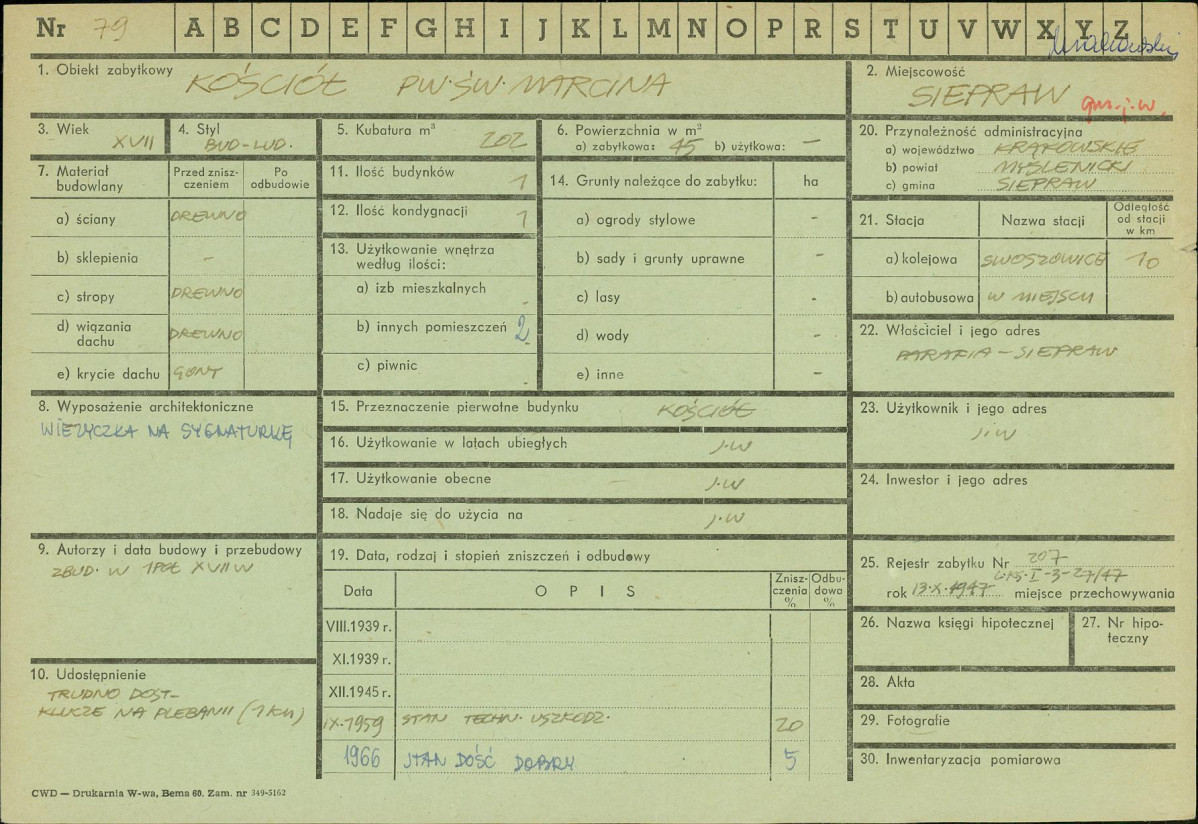 Nr 79 A B C D E F G H I J K L M N O P R S T U V W X Y Z
1. Obiekt zabytkowy KOŚCIÓŁ PW·ŚW·MARCINA
2. Miejscowość
SIEPRAW gm. j. w.
3. Wiek
XVII
4. Styl
BUD-LUD·
5. Kubatura m³ 202
6. Powierzchnia w m²
a) zabytkowa: 45 b) użytkowa: —
7. Materiał budowlany
Przed znisz-
czeniem
Po
odbudowie
a) ściany DREWNO
b) sklepienia -
c) stropy DREWNO
d) wiązania
dachu DREWNO
e) krycie dachu GONT
8. Wyposażenie architektoniczne
WIEŻYCZKA NA SYGNATURKĘ
9. Autorzy i data budowy i przebudowy
ZBUD· W 1 POŁ XVII W
10. Udostępnienie
TRUDNO DOST-
KLUCZE NA PLEBANII (1 KM)
11. Ilość budynków 1
12. Ilość kondygnacji 1
13. Użytkowanie wnętrza
według ilości:
a) izb mieszkalnych -
b) innych pomieszczeń 2
c) piwnic -
14. Grunty należące do zabytku: ha
a) ogrody stylowe -
b) sady i grunty uprawne -
c) lasy -
d) wody -
e) inne -
15. Przeznaczenie pierwotne budynku KOŚCIÓŁ
16. Użytkowanie w latach ubiegłych J.W
17. Użytkowanie obecne J.W
18. Nadaje się do użycia na J.W
19. Data, rodzaj i stopień zniszczeń i odbudowy
Data OPIS Znisz-
czenia
%
Odbu-
dowa
%
VIII.1939 r.
XI.1939 r.
XII.1945 r.
IX·1959 STAN TECHN· USZKODZ· 20
1966 STAN DOŚĆ DOBRY 5
20. Przynależność administracyjna
a) województwo KRAKOWSKIE
b) powiat MYŚLENICKI
c) gmina SIEPRAW
21. Stacja Nazwa stacji Odległość
od stacji
w km
a) kolejowa SWOSZOWICE 10
b) autobusowa W MIEJSCU
22. Właściciel i jego adres
PARAFIA — SIEPRAW
23. Użytkownik i jego adres
J.W
24. Inwestor i jego adres
25. Rejestr zabytku Nr 207
rok 13·X·1947 miejsce przechowywania
26. Nazwa księgi hipotecznej
27. Nr hipo-
teczny
28. Akta
29. Fotografie
30. Inwentaryzacja pomiarowa
CWD — Drukarnia W-wa, Bema 60. Zam. nr 349-5162